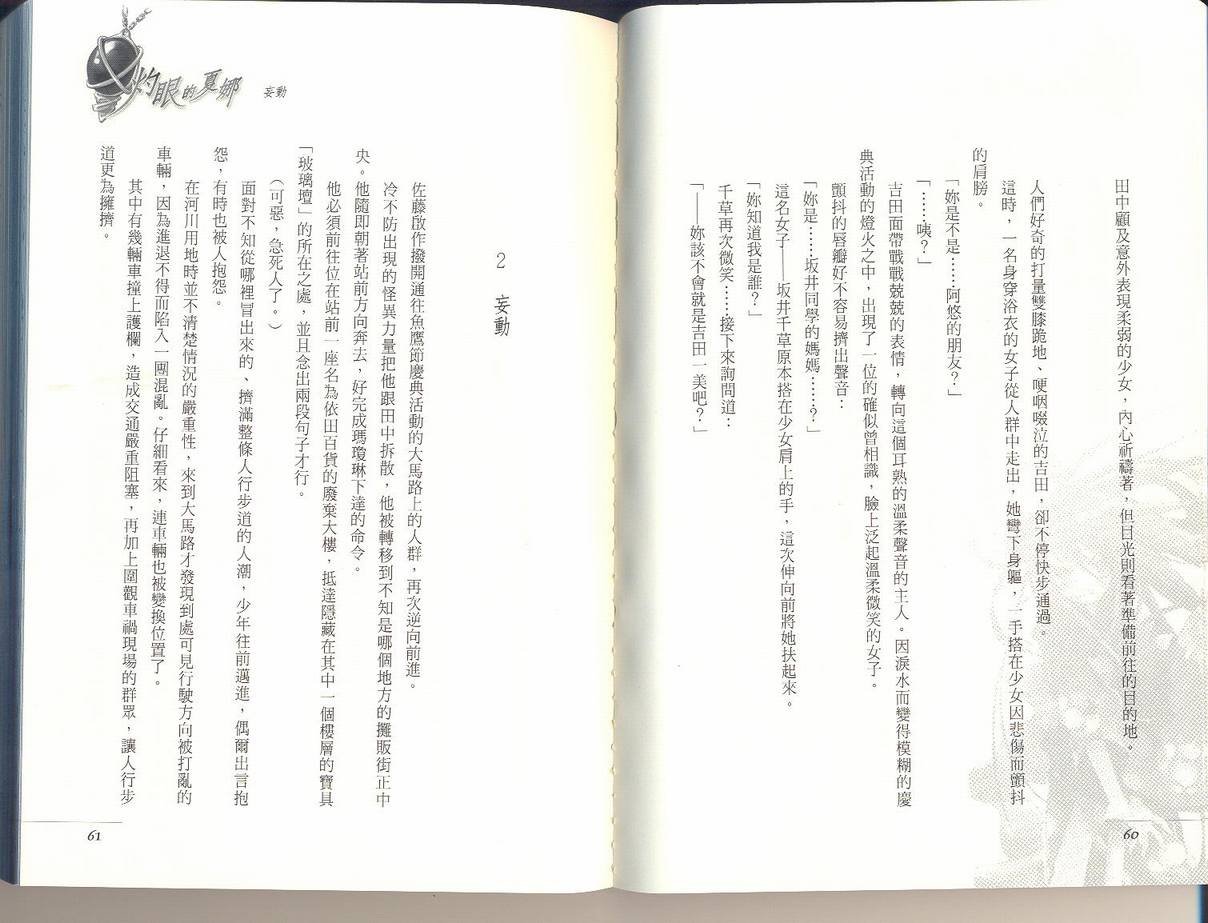 田中顧及意外表現柔弱的少女，內心祈禱著，但目光則看著準備前往的目的地。
人們好奇的打量雙膝跪地、哽咽啜泣的吉田，卻不停快步通過。
這時，一名身穿浴衣的女子從人群中走出，她彎下身軀，一手搭在少女因悲傷而顫抖
的肩膀。
「妳是不是……阿悠的朋友？」
「……咦？」
吉田面帶戰戰兢兢的表情，轉向這個耳熟的溫柔聲音的主人。因淚水而變得模糊的慶
典活動的燈火之中，出現了一位的確似曾相識，臉上泛起溫柔微笑的女子。
顫抖的唇瓣好不容易擠出聲音：
「妳是……坂井同學的媽媽……？」
這名女子——坂井千草原本搭在少女肩上的手，這次伸向前將她扶起來。
「妳知道我是誰？」
千草再次微笑……接下來詢問道：
「——妳該不會就是吉田一美吧？」
60
灼眼的夏娜 妄動
2 妄動
佐藤啟作撥開通往魚鷹節慶典活動的大馬路上的人群，再次逆向前進。
冷不防出現的怪異力量把他跟田中拆散，他被轉移到不知是哪個地方的攤販街正中
央。他隨即朝著站前方向奔去，好完成瑪瓊琳下達的命令。
他必須前往位在站前一座名為依田百貨的廢棄大樓，抵達隱藏在其中一個樓層的寶具
「玻璃壇」的所在之處，並且念出兩段句子才行。
（可惡，急死人了。）
面對不知從哪裡冒出來的、擠滿整條人行步道的人潮，少年往前邁進，偶爾出言抱
怨，有時也被人抱怨。
在河川用地時並不清楚情況的嚴重性，來到大馬路才發現到處可見行駛方向被打亂的
車輛，因為進退不得而陷入一團混亂。仔細看來，連車輛也被變換位置了。
其中有幾輛車撞上護欄，造成交通嚴重阻塞，再加上圍觀車禍現場的群眾，讓人行步
道更為擁擠。
61